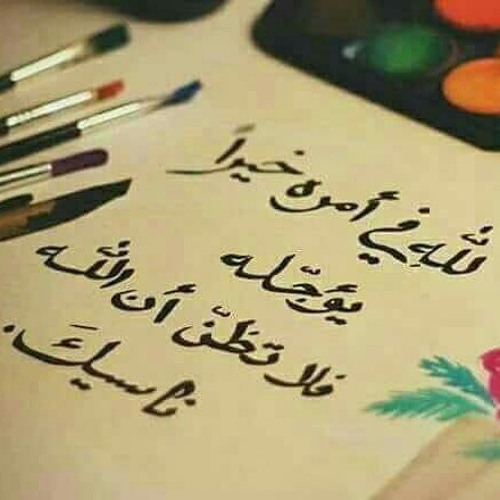 لله في أمره خيراً
يؤجّله
فلا تظنّ أن الله
ناسيكَ.